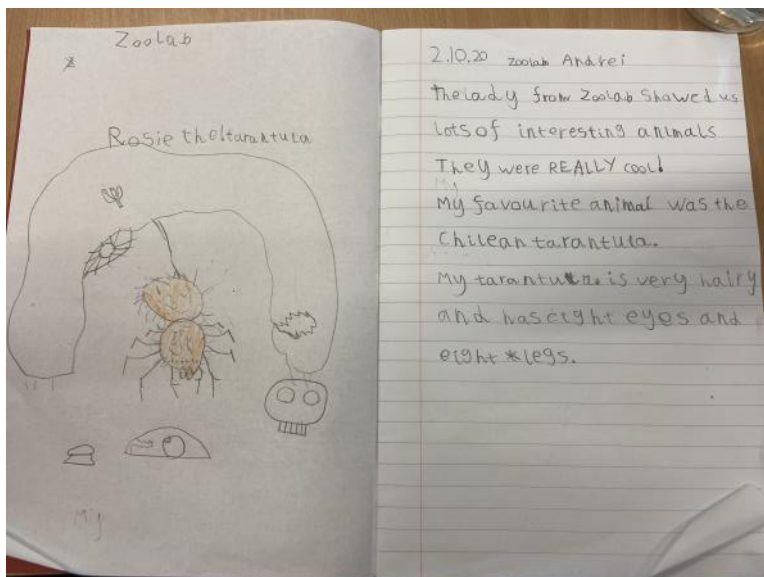 Zoolab
Rosie the tarantula
My
2.10.20 Zoolab Andrei
the lady from Zoolab Showed us
lots of interesting animals
They were REALLY cool!
My
My favourite animal was the
Chilean tarantula.
My tarantula is very hairy
and has eight eyes and
eight *legs.